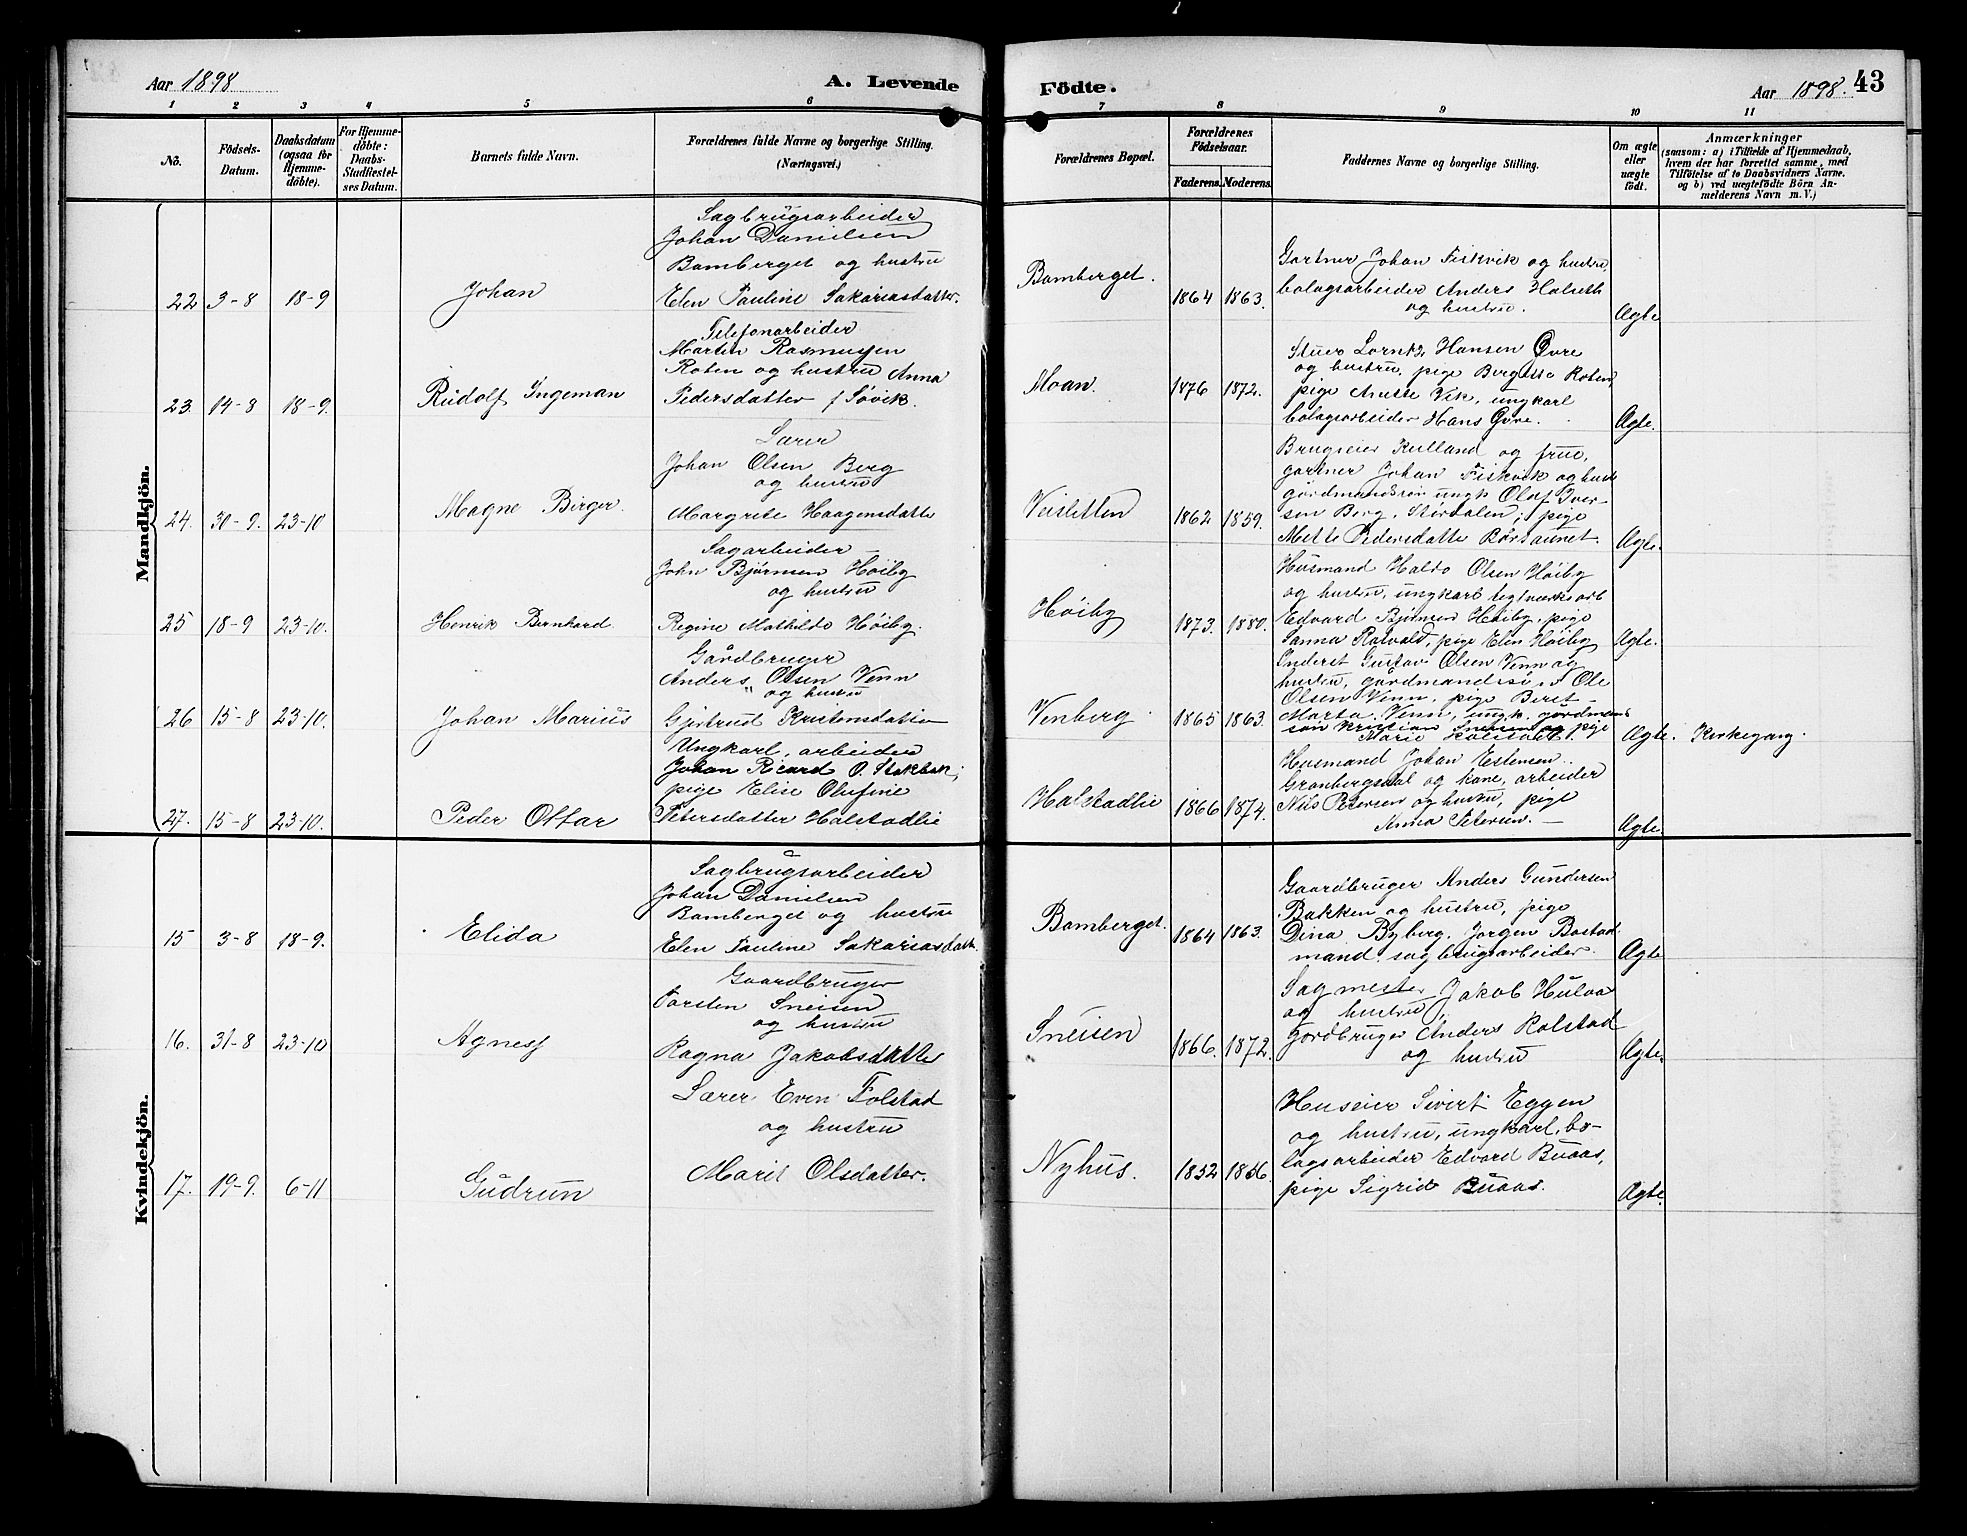 Aar 1898
A. Levende
Födte.
Aar 1898.
43
1 2 3 4 5 6 7 8 9 10 11
No.
Födsels-
Datum.
Daabsdatum
(ogsaa for
Hjemme-
döbte).
For Hjemme-
döbte:
Daabs-
Stadfæstel-
ses Datum.
Barnets fulde Navn.
Forældrenes fulde Navne og borgerlige Stilling.
(Næringsvei.)
Forældrenes Bopæl.
Forældrenes
Födselsaar.
Faderens. Moderens.
Faddernes Navne og borgerlige Stilling.
Om ægte
eller
uægte
födt.
Anmærkninger
(saasom: a) i Tilfælde af Hjemmedaab,
hvem der har forrettet samme, med
Tilföielse af to Daabsvidners Navne,
og b) ved uægtefödte Börn An-
melderens Navn m. V.)
Mandkjön.
22 3-8 18-9
Johan
Sagbrugsarbeider
Johan Danielsen
Bamberget og hustru
Elen Pauline Sakariasdatter.
Bamberget.
1864 1863.
Gartner Johan Fiskvik og hustru,
bolagsarbeider Anders Halseth
og hustru.
Ægte
23. 14-8 18-9.
Rudolf Ingeman
Telefonarbeider
Martin Rasmussen
Roten og hustru Anna
Pedersdatter f Søvik.
Moan.
1876 1872.
Stuer Lorntz Hansen Øvre
og hustru, pige Roten
pige Anette Vik, ungkarl
bolagsarbeider Hans Øvre.
Ægte.
24. 30-9. 23-10
Magne Birger.
Lærer
Johan Olsen Berg
og hustru
Margrete Haagensdatte
Veisletten
1862 1859.
Brugseier Kulland og frue,
gartner Johan Fiskvik og hust
gårdmandssøn ungk Olaf Iver-
sen Berg, Størdalen; pige
Mette Pedersdatte Børsaunet.
Ægte.
25 18-9 23-10.
Henrik Bernhard.
Sagarbeider
John Bjørnsen Høiby
og hustru
Regine Mathilde Høiby.
Høiby
1873. 1880.
Husmand Haldo Olsen Høiby
og hustru, ungkarl teglværksarb
Edvard Bjørnsen Høiby, pige
Sanna Rotvold, pige Elen Høiby
Ægte.
26 15-8 23-10.
Johan Marius
Gårdbruger
Anders Olsen Venn
" og hustru
Gjertrud Kristensdatter
Venberg
1865 1863.
Inderst Gustav Olsen Venn og
hustru, gårdmandssøn Ole
Olsen Venn, pige Beret
Marta Venn, ungk. gårdmans
søn Kristian Sneisen og pige
Marie
Ægte. Kirkegang.
27. 15-8 23-10.
Peder Ottar
Ungkarl, arbeider
Johan Ricard O. Stokbak;
pige Elise Olufine
Petersdatter Halstadlie
Halstadlie
1866 1874.
Husmand Johan Estensen
Granbergsdal og kone, arbeider
Nils Petersen og hustru, pige
Anna Petersen. —
Ægte.
Kvindekjön.
15 3-8 18-9.
Elida
Sagbrugsarbeider
Johan Danielsen
Bamberget og hustru
Elen Pauline Sakariasdatt.
Bamberget.
1864 1863.
Gaardbruger Anders Gundersen
Bakken og hustru, pige
Dina Byberg, Jørgen Bostad
mand, sagbrugsarbeider.
Ægte
16. 31-8 23-10
Agnes
Gaardbruger
Torsten Sneisen
og hustru
Ragna Jakobsdatter
Sneisen
1866. 1872.
Sagmester Jakob Hulaa
og hustru,
Gårdbruger Anders Rolstad
og hustru
Ægte.
17. 19-9. 6-11
Gudrun
Lærer Even Folstad
og hustru
Marit Olsdatter.
Nyhus.
1852 1856.
Huseier Sivert Eggen
og hustru, ungkarl, bo-
lagsarbeider Edvard Buaas,
pige Sigrid Buaas.
Ægte.